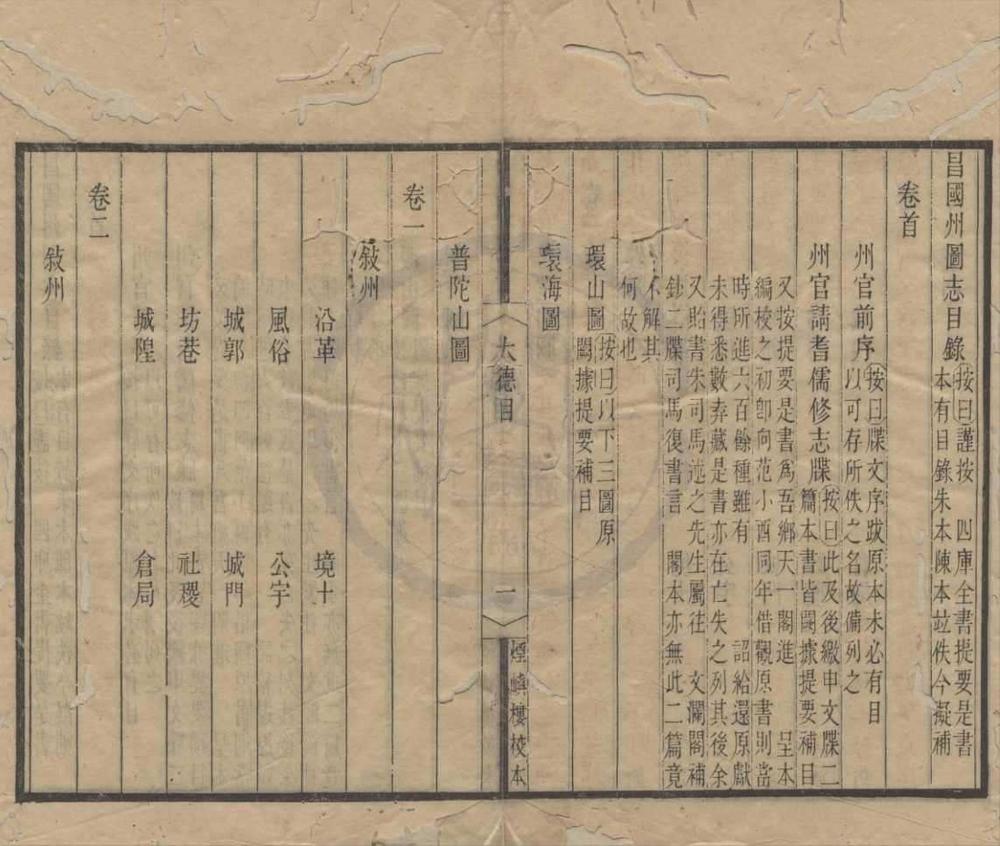 昌國州圖志目錄按曰謹按 四庫全書提要是書
本有目錄朱本陳本竝佚今擬補
卷首
州官前序按曰牒文序跋原本未必有目
以可存所佚之名故備列之
州官請耆儒修志牒按曰此及後繳申文牒二
篇本書皆闕據提要補目
又按提要是書爲吾鄉天一閣進 呈本
編校之初卽向范小酉同年借觀原書則當
時所進六百餘種雖有 詔給還原獻
未得悉數弆藏是書亦在亡失之列其後余
又貽書朱司馬述之先生屬往 文瀾閣補
鈔二牒司馬復書言 閣本亦無此二篇竟
不解其
何故也
環山圖按曰以下三圖原
闕據提要補目
環海圖
普陀山圖
大德目 一 煙嶼樓校本
卷一
敍州
沿革 境土
風俗 公宇
城郭 城門
坊巷 社稷
城隍 倉局
卷二
敍州